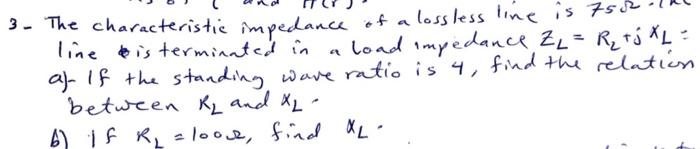 3- The characteristic impedance of a lossless line is 75Ω.
line is terminated in a load impedance Z_L = R_L + j X_L =
a)- If the standing wave ratio is 4, find the relation
between R_L and X_L.
b) if R_L = 100Ω, find X_L.